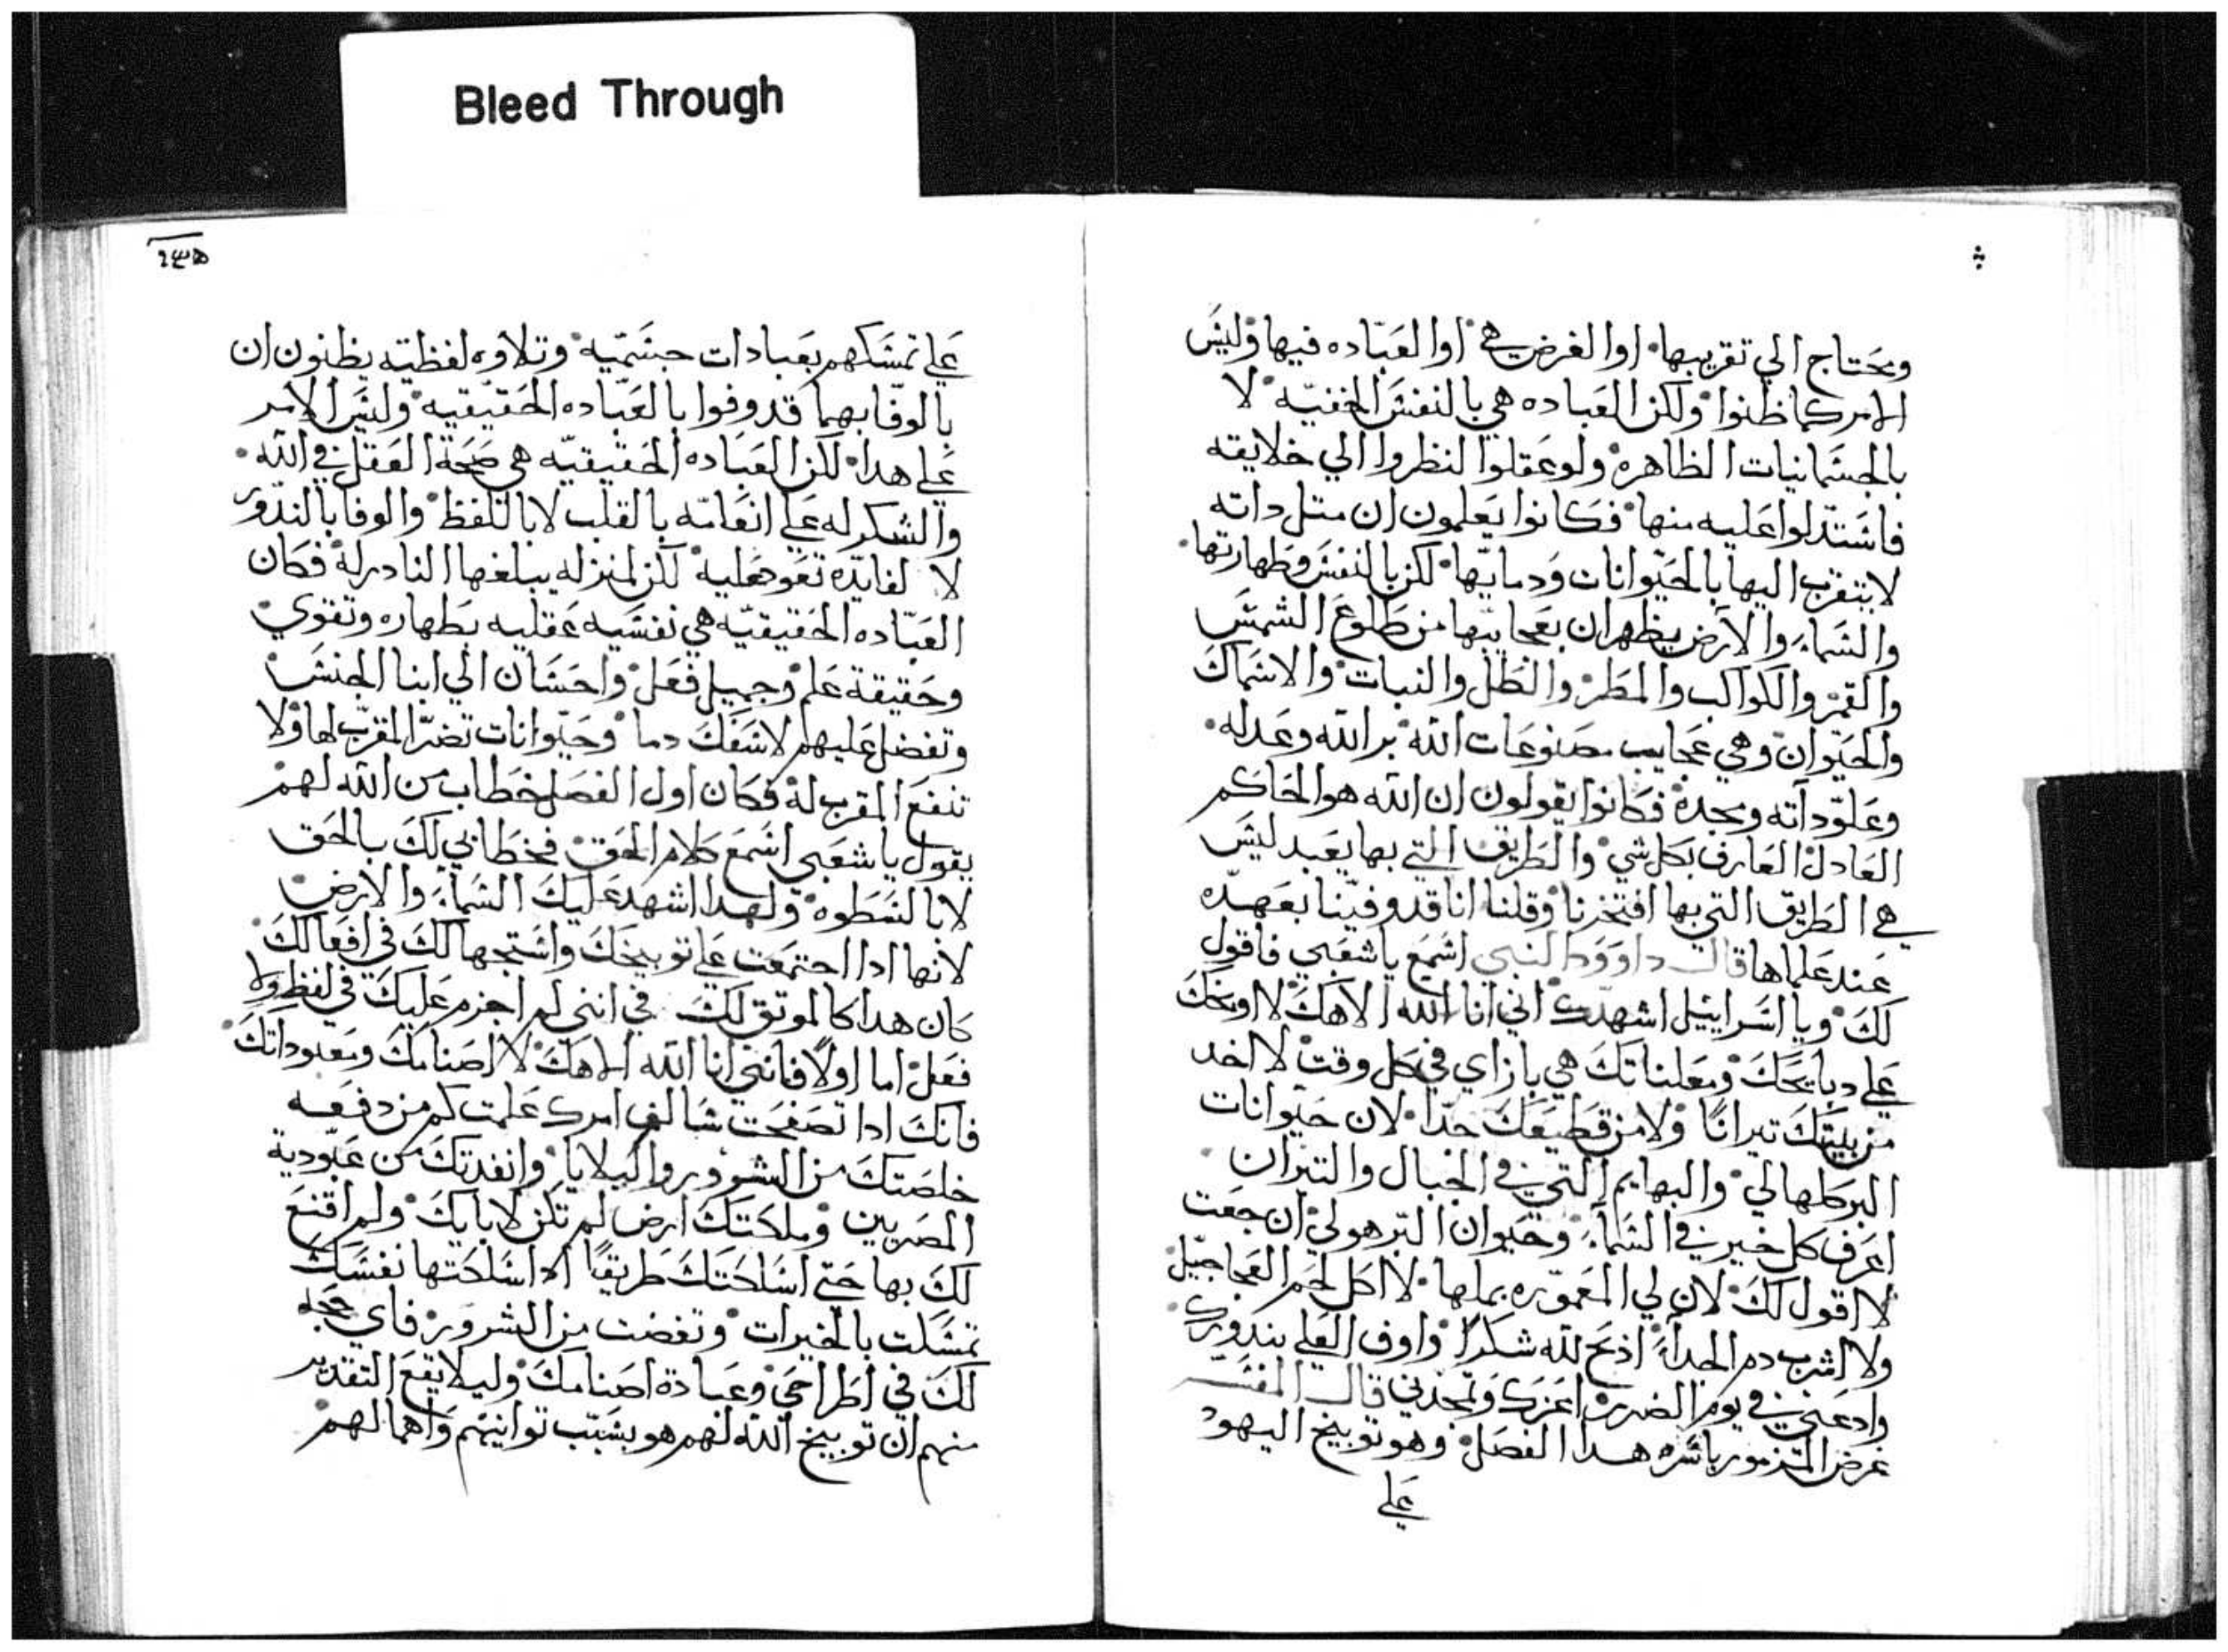 Bleed Through
ويحتاج الي تقريبها. اوا الغرض هي اوا العباده فيها وليس
الامر كما ظنوا ولكن العباده هي بالنفس الخفيه لا
بالجسمانيات الظاهره ولو عقلوا لنظروا الي خلايقه
فاستدلوا عليه منها فكانوا يعلمون ان متل داته
لا يتقرب اليها بالحيوانات ودمايها لكن بالنفس وطهارتها.
والسماء والارض يظهران بعجايبها من طلوع الشمس
والقمر والكواكب والمطر والطل والنبات والاسماك
والحيوان وهي عجايب مصنوعات الله بر الله وعدله.
وعلو داته ومجده فكانوا يقولون ان الله هو الحاكم
العادل العارف بكل شي والطريق التي بها يعبد ليس
هي الطريق التي بها افتخرنا وقلنا انا قد وفينا بعهده
عند علماها قال داوود النبي اسمع يا شعبي فاقول
لك ويا اسراييل اشهدك اني انا الله الاهك لا اوبخك
علي دبايحك ومعلناتك هي بازاي في كل وقت لا اخد
من بيتك تيرانًا ولا من قطيعك جدا. لان حيوانات
البر كلها لي والبهايم التي في الجبال والتيران
اعرف كل خير في السماء وحيوان البر هو لي ان جعت
لا اقول لك لان لي المعموره بملها. لا اكل لحم العجاجيل
ولا اشرب دم الجداء اذبح لله شكرًا واوف العلي بندورك
وادعني في يوم الضرر اعزك وتمجدني قال المفسر
غرض المزمور باسره هدا الفصل وهو توبيخ اليهود
علي
٢٣٥
علي تمسكهم بعبادات جسميه وتلاوه لفظيه يظنون ان
بالوفا بهما قد وفوا بالعباده الحقيقيه وليس الامر
علي هدا. لكن العباده الحقيقيه هي صحة العقل في الله.
والشكر له علي انعامه بالقلب لا بالتلفظ والوفا بالندور
لا لفايده تعود عليه لكن لمنزله يبلغها النادر له فكان
العباده الحقيقيه هي نفسيه عقليه بطهاره وتقوي
وحقيقة علم وجميل فعل واحسان الي ابنا الجنس
وتفضل عليهم لا سفك دما وحيوانات تضر المقرب لها ولا
تنفع المقرب له فكان اول الفصل خطاب من الله لهم
يقول يا شعبي اسمع كلام الحق فخطابي لك بالحق
لا بالسطوه ولهدا اشهد عليك السماء والارض
لانها ادا اجتمعت علي توبيخك واستجهالك في افعالك
كان هدا كالموتق لك في انني لم اجزم عليك في لفظ ولا
فعل اما اولًا فانني انا الله الاهك لا اصنامك ومعبوداتك
فانك ادا تصفحت سالف امرك علمت كم من دفعه
خلصتك من الشرور والبلايا وانقدتك من عبودية
المصريين وملكتك ارض لم تكن لابايك ولم اقنع
لك بها حتي اسلكتك طريقًا ادا سلكتها نفسك
تمسكت بالخيرات ونقضت من الشرور فاي حجه
لك في اطراحي وعبادة اصنامك وليلا يقع التقدير
منهم ان توبيخ الله لهم هو بسبب توانيهم واهمالهم